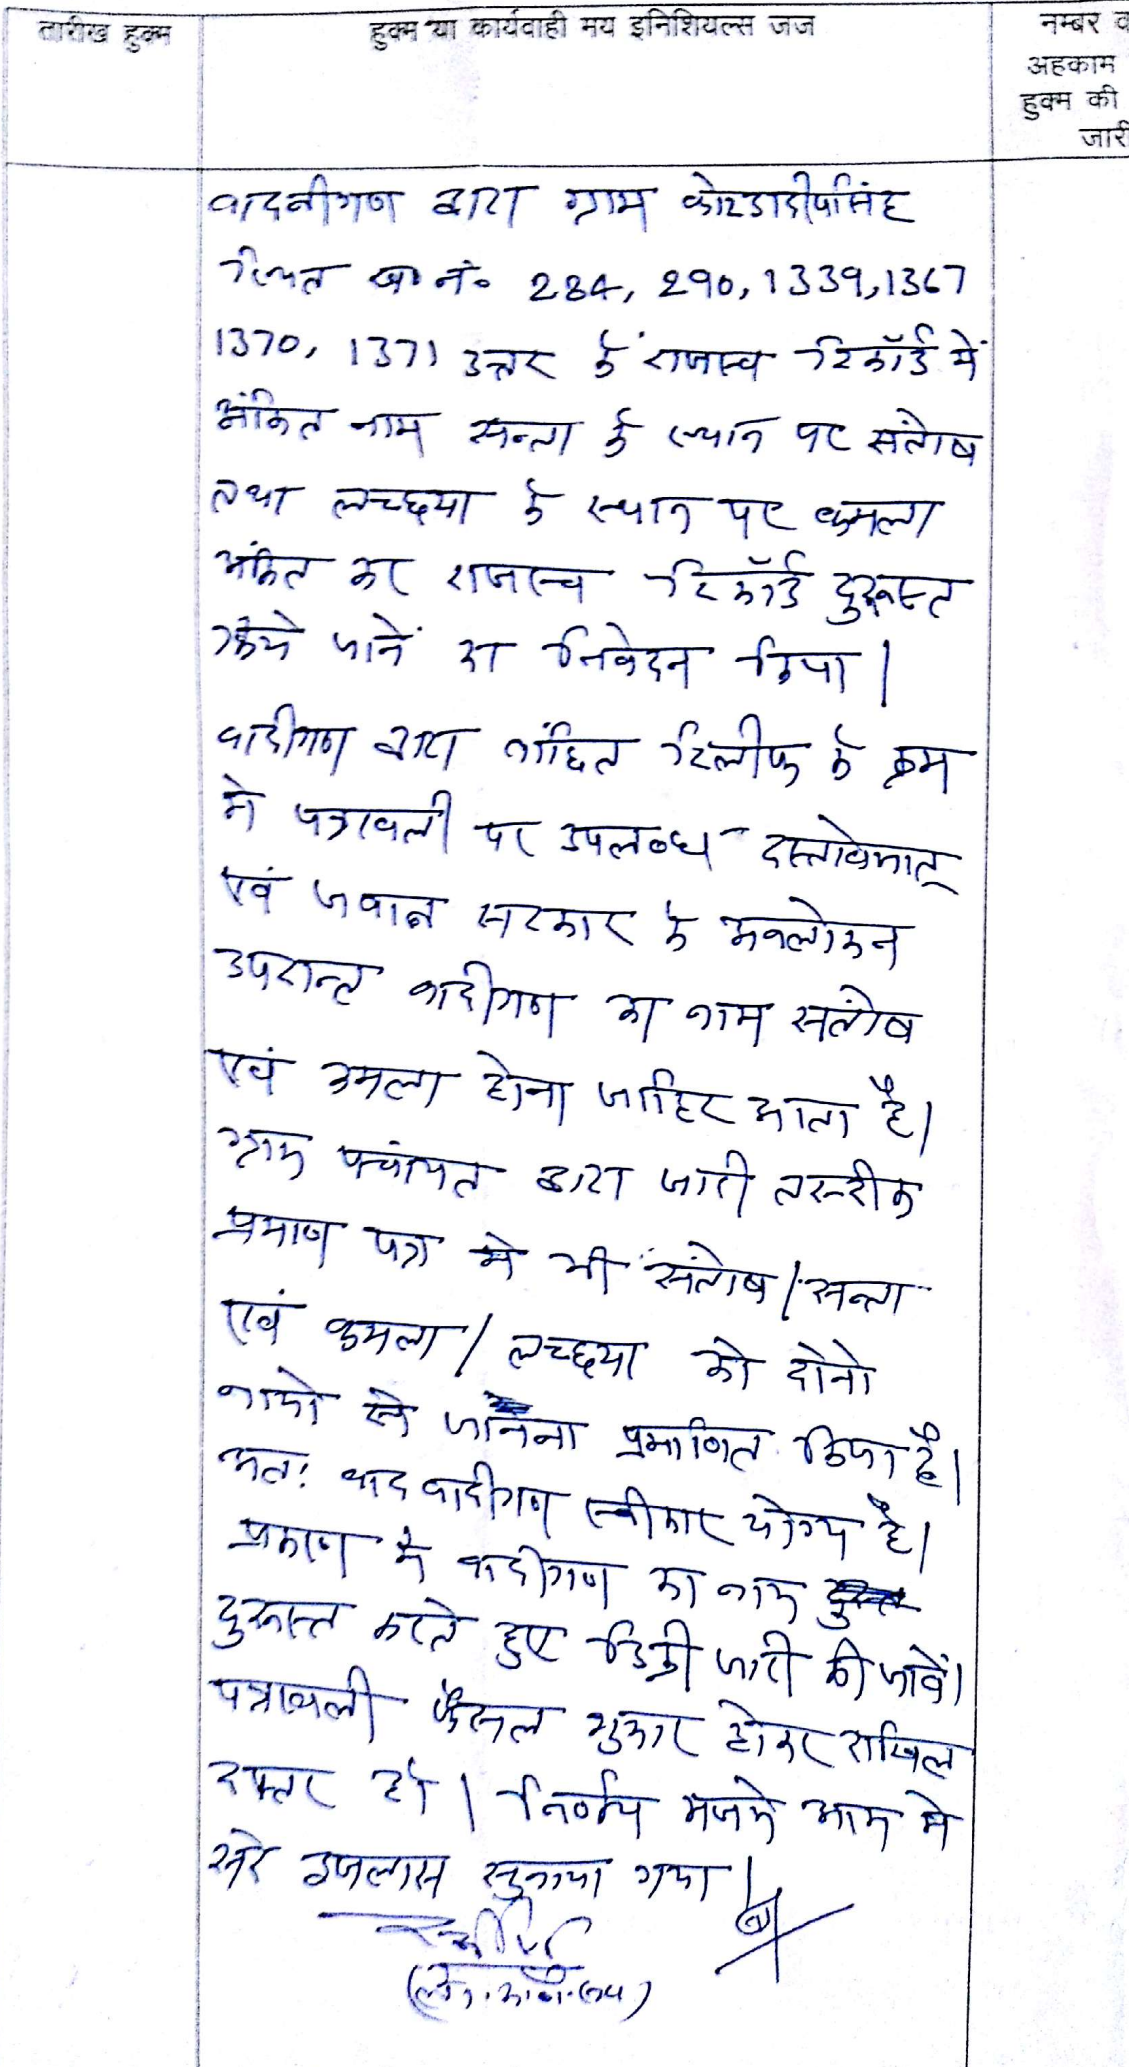 तारीख हुक्म
हुक्म या कार्यवाही मय इनिशियल्स जज
नम्बर व
अहकाम
हुक्म की
जारी
वादनीगण द्वारा ग्राम
स्थित ख० नं० 284, 290, 1339, 1367
1370, 1371 उत्तर के राजस्व रिकॉर्ड में
अंकित नाम सन्ता के स्थान पर संतोष
तथा लच्छया के स्थान पर कमला
अंकित कर राजस्व रिकॉर्ड दुरूस्त
किये जाने का निवेदन किया।
वादीगण द्वारा वांछित रिलीफ के क्रम
मे पत्रावली पर उपलब्ध दस्तावेजात्
एवं जवाब सरकार के अवलोकन
उपरान्त वादीगण का नाम सतोंष
एवं कमला होना जाहिर आता है।
ग्राम पचांयत द्वारा जारी तस्दीक
प्रमाण पत्र मे भी संतोष / सन्ता
एवं कमला / लच्छया को दोनो
नामो से जानना प्रमाणित किया है।
अतः वाद वादीगण स्वीकार योग्य है।
प्रकरण मे वादीगण का नाम
दुरूस्त करते हुए डिक्री जारी की जावें।
पत्रावली फैसल शुमार होकर दाखिल
दफ्तर हो। निर्णय मजमे आम मे
सरे इजलास सुनाया गया।